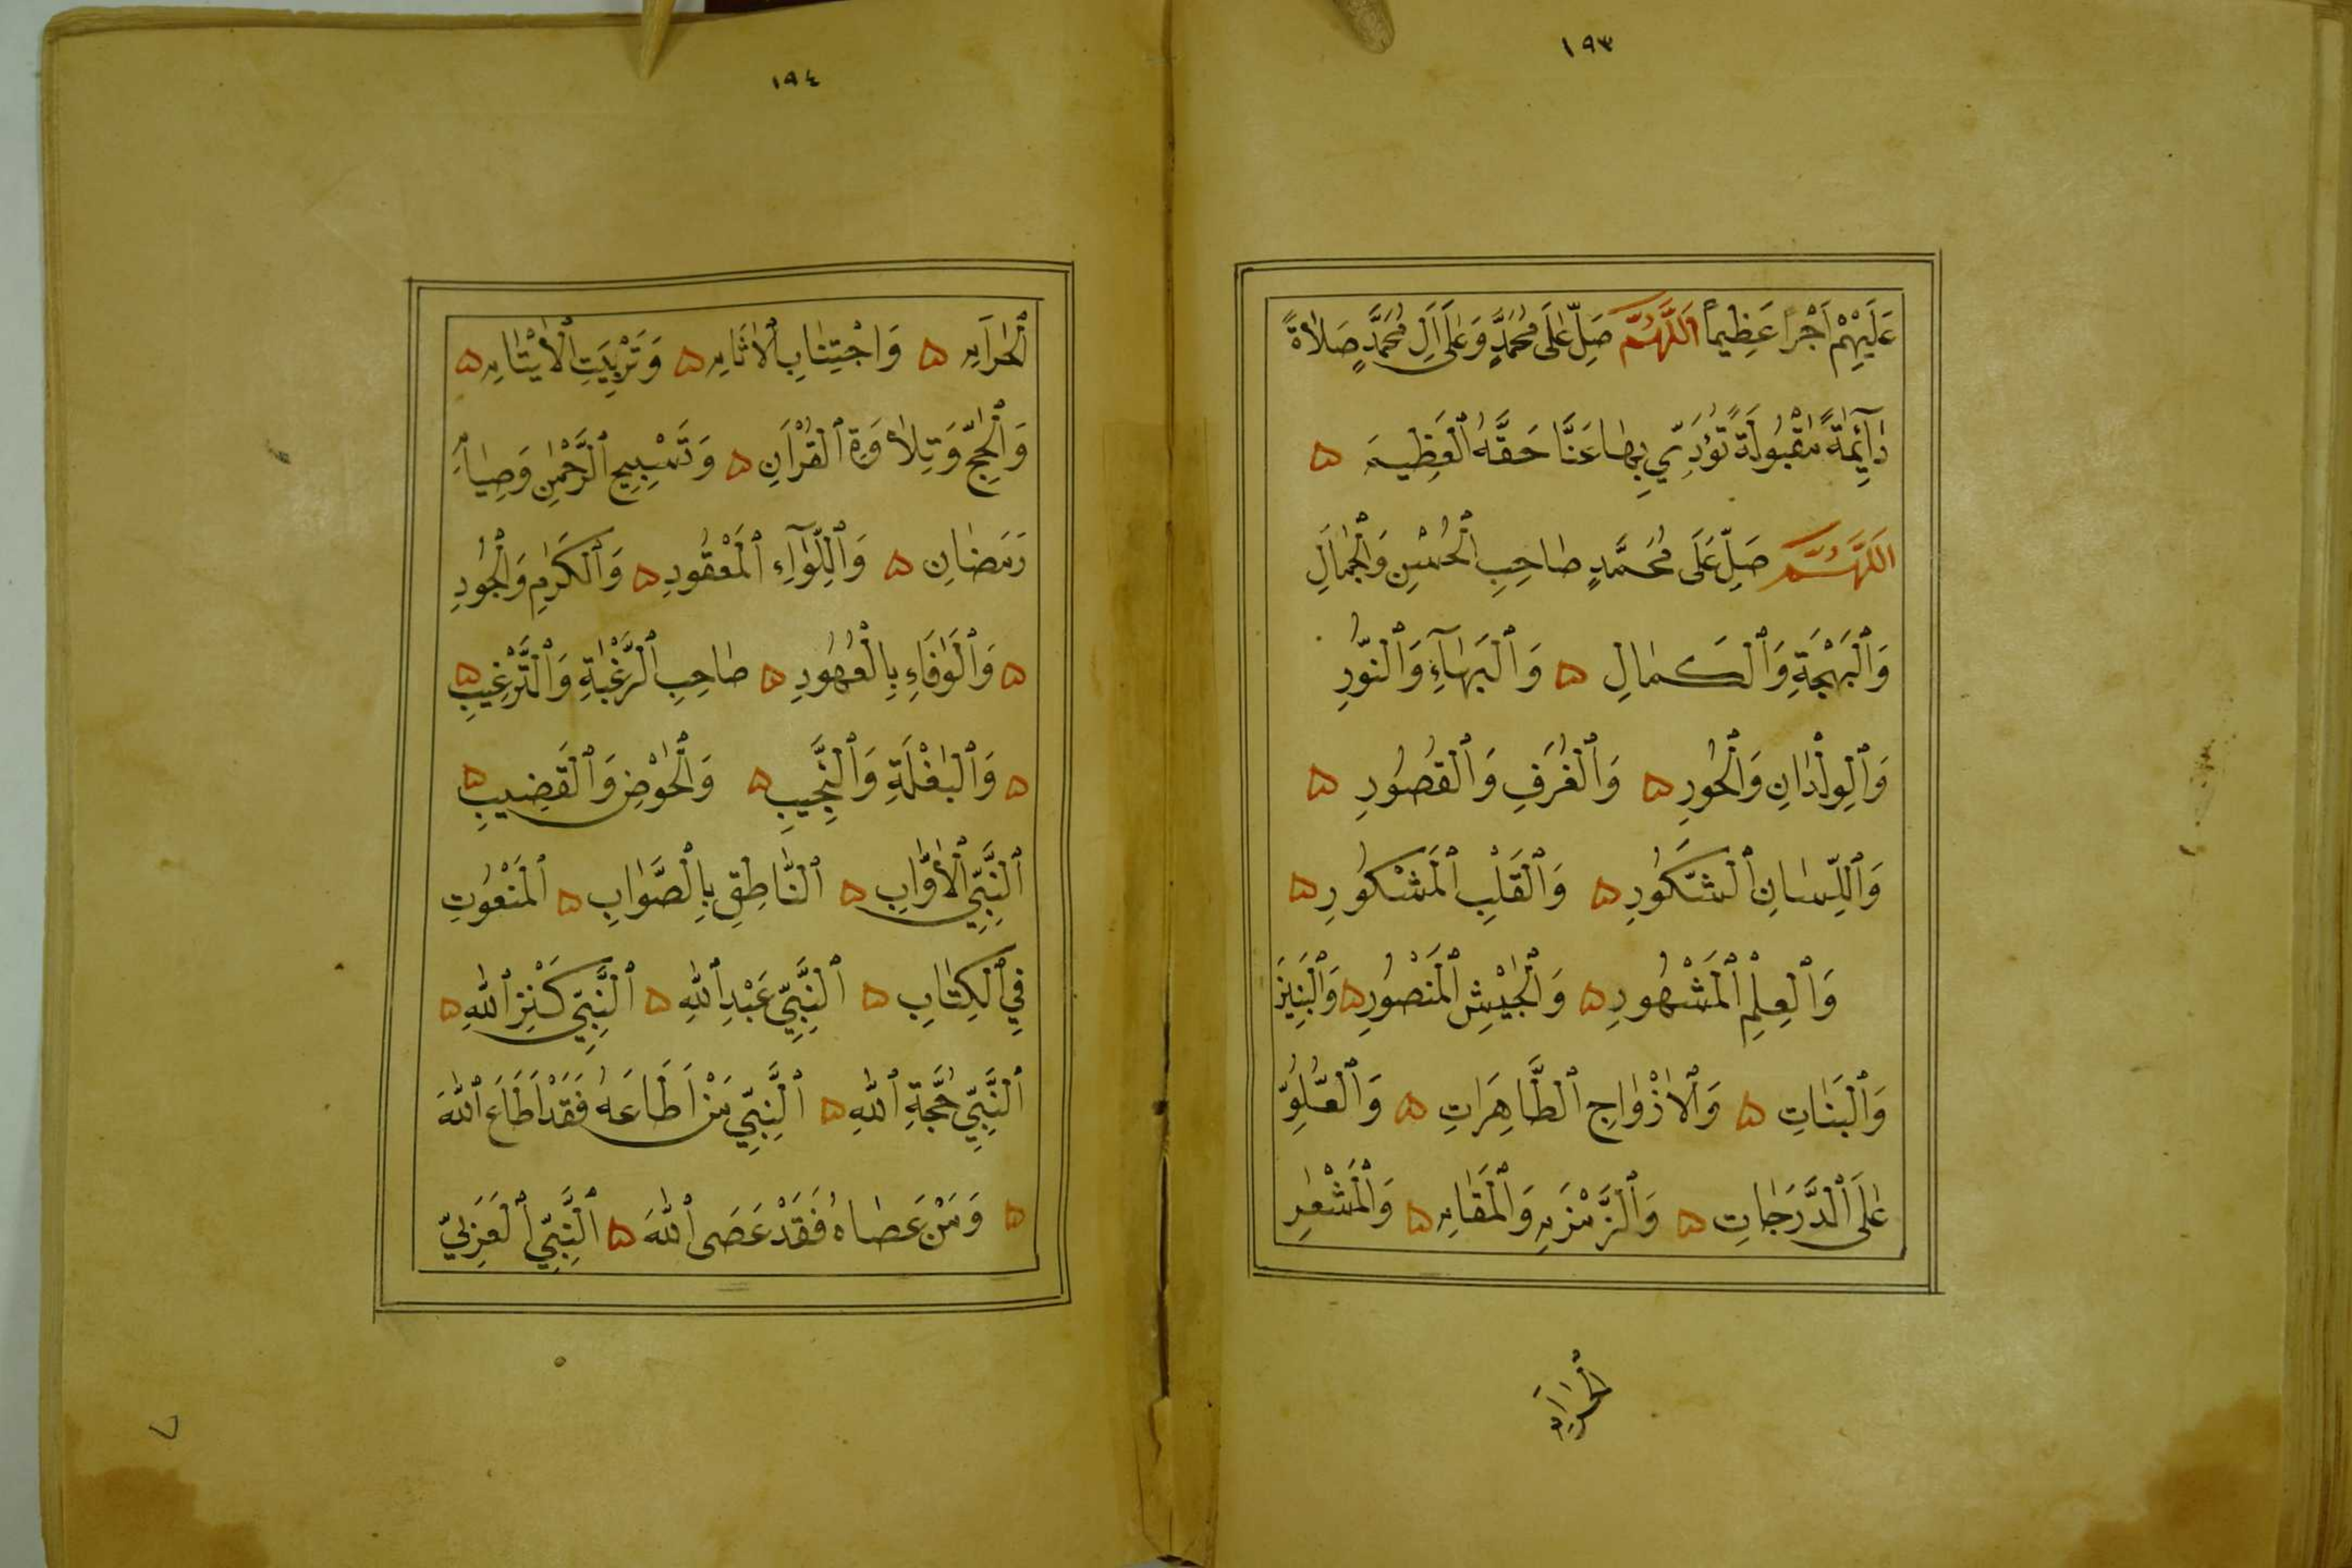 ١٩٣
عَلَيْهِمْ أَجْرًا عَظِيمًا اَللَّهُمَّ صَلِّ عَلَى مُحَمَّدٍ وَعَلَى آلِ مُحَمَّدٍ صَلَاةً
دَآئِمَةً مَقْبُولَةً تُؤَدِّي بِهَا عَنَّا حَقَّهُ ٱلْعَظِيمَ ۵
اَللَّهُمَّ صَلِّ عَلَى مُحَمَّدٍ صَاحِبِ ٱلْحُسْنِ وَٱلْجَمَالِ
وَٱلْبَهْجَةِ وَٱلْكَمَالِ ۵ وَٱلْبَهَآءِ وَٱلنُّورِ
وَٱلْوِلْدَانِ وَٱلْحُورِ ۵ وَٱلْغُرَفِ وَٱلْقُصُورِ ۵
وَٱللِّسَانِ ٱلشَّكُورِ ۵ وَٱلْقَلْبِ ٱلْمَشْكُورِ ۵
وَٱلْعِلْمِ ٱلْمَشْهُورِ ۵ وَٱلْجَيْشِ ٱلْمَنْصُورِ ۵ وَٱلْبَنِينَ
وَٱلْبَنَاتِ ۵ وَٱلْأَزْوَاجِ ٱلطَّاهِرَاتِ ۵ وَٱلْعُلُوِّ
عَلَى ٱلدَّرَجَاتِ ۵ وَٱلزَّمْزَمِ وَٱلْمَقَامِ ۵ وَٱلْمَشْعَرِ
ٱلْحَرَامِ
١٩٤
ٱلْحَرَامِ ۵ وَاجْتِنَابِ ٱلْأَثَامِ ۵ وَتَرْبِيَتِ ٱلْأَيْتَامِ ۵
وَٱلْحَجِّ وَتِلَاوَةِ ٱلْقُرْآنِ ۵ وَتَسْبِيحِ ٱلرَّحْمٰنِ وَصِيَامِ
رَمَضَانِ ۵ وَٱللِّوَآءِ ٱلْمَعْقُودِ ۵ وَٱلْكَرَمِ وَٱلْجُودِ
۵ وَٱلْوَفَاءِ بِالْعُهُودِ ۵ صَاحِبِ ٱلرَّغْبَةِ وَٱلتَّرْغِيبِ ۵
۵ وَٱلْبَغْلَةِ وَٱلنَّجِيبِ ۵ وَٱلْحَوْضِ وَٱلْقَضِيبِ ۵
ٱلنَّبِيِّ ٱلْأَوَّابِ ۵ ٱلنَّاطِقِ بِٱلصَّوَابِ ۵ ٱلْمَنْعُوتِ
فِي ٱلْكِتَابِ ۵ ٱلنَّبِيِّ عَبْدِ ٱللّٰهِ ۵ ٱلنَّبِيِّ كَنْزِ ٱللّٰهِ ۵
ٱلنَّبِيِّ حُجَّةِ ٱللّٰهِ ۵ ٱلنَّبِيِّ مَنْ أَطَاعَهُ فَقَدْ أَطَاعَ ٱللّٰهَ
۵ وَمَنْ عَصَاهُ فَقَدْ عَصَى ٱللّٰهَ ۵ ٱلنَّبِيِّ ٱلْعَرَبِيِّ